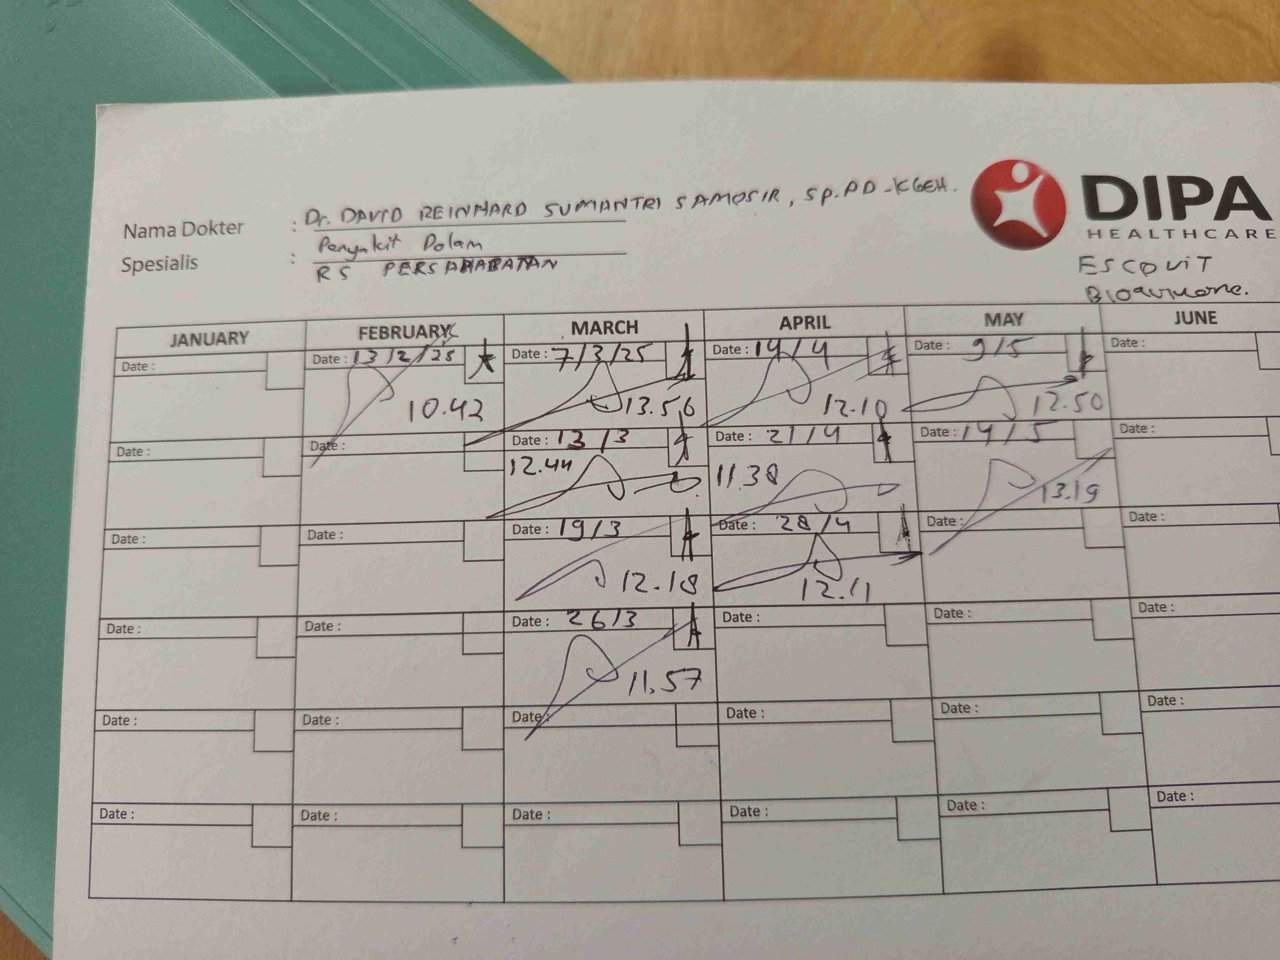 DIPA
HEALTHCARE
Nama Dokter : Dr. DAVID REINHARD SUMANTRI SAMOSIR, Sp.PD-KGEH.
Spesialis : Penyakit Dalam
RS PERSAHABATAN
ESCOVIT
JANUARY FEBRUARY MARCH APRIL MAY JUNE
Date : Date : 13/2/25 Date : 7/3/25 Date : 14/4 Date : 9/5 Date :
10.42 13.56 12.10 12.50
Date : Date : Date : 13/3 Date : 21/4 Date : 14/5 Date :
12.44 11.38 13.19
Date : Date : Date : 19/3 Date : 28/4 Date : Date :
12.18 12.11
Date : Date : Date : 26/3 Date : Date : Date :
11.57
Date : Date : Date : Date : Date : Date :
Date : Date : Date : Date : Date : Date :